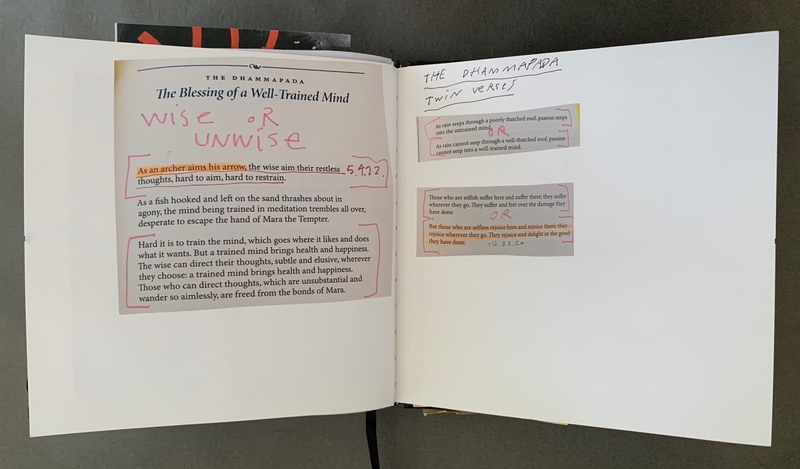 THE DHAMMAPADA
The Blessing of a Well-Trained Mind
WISE OR
UNWISE
As an archer aims his arrow, the wise aim their restless
thoughts, hard to aim, hard to restrain.
5.9.22.
As a fish hooked and left on the sand thrashes about in
agony, the mind being trained in meditation trembles all over,
desperate to escape the hand of Mara the Tempter.
Hard it is to train the mind, which goes where it likes and does
what it wants. But a trained mind brings health and happiness.
The wise can direct their thoughts, subtle and elusive, wherever
they choose: a trained mind brings health and happiness.
Those who can direct thoughts, which are unsubstantial and
wander so aimlessly, are freed from the bonds of Mara.
THE DHAMMAPADA
TWIN VERSES
As rain seeps through a poorly thatched roof, passion seeps
into the untrained mind.
OR
As rain cannot seep through a well-thatched roof, passion
cannot seep into a well-trained mind.
Those who are selfish suffer here and suffer there; they suffer
wherever they go. They suffer and fret over the damage they
have done.
OR
But those who are selfless rejoice here and rejoice there; they
rejoice wherever they go. They rejoice and delight in the good
they have done.
12.22.20